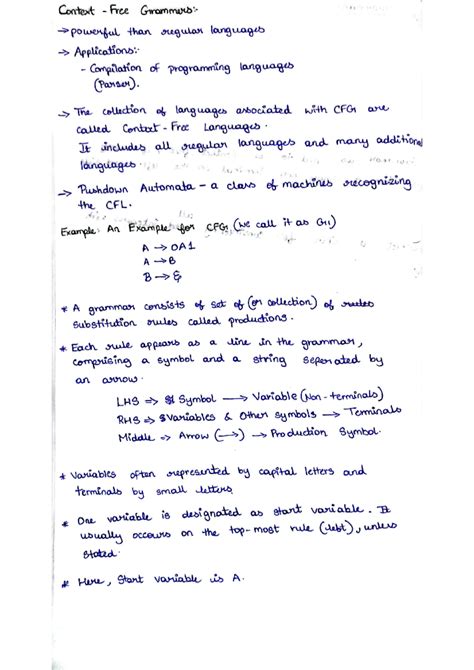 Context - Free Grammers:-
→ powerful than regular languages
→ Applications:-
- Compilation of programming languages
(Parser).
→ The collection of languages associated with CFG are
called Context-Free Languages.
It includes all regular languages and many additional
languages.
→ Pushdown Automata - a class of machines recognizing
the CFL.
Example: An Example for CFG (we call it as G1)
A → 0A1
A → B
B → ε
* A grammar consists of set of (or collection) of
substitution rules called productions.
* Each rule appears as a line in the grammar,
comprising a symbol and a string seperated by
an arrow.
LHS ⇒ Symbol → Variable (Non-terminals)
RHS ⇒ Variables & Other symbols → Terminals
Middle ⇒ Arrow (→) → Production Symbol.
* Variables often represented by capital letters and
terminals by small letters.
* One variable is designated as start variable. It
usually occurs on the top-most rule, unless
stated.
* Here, Start variable is A.